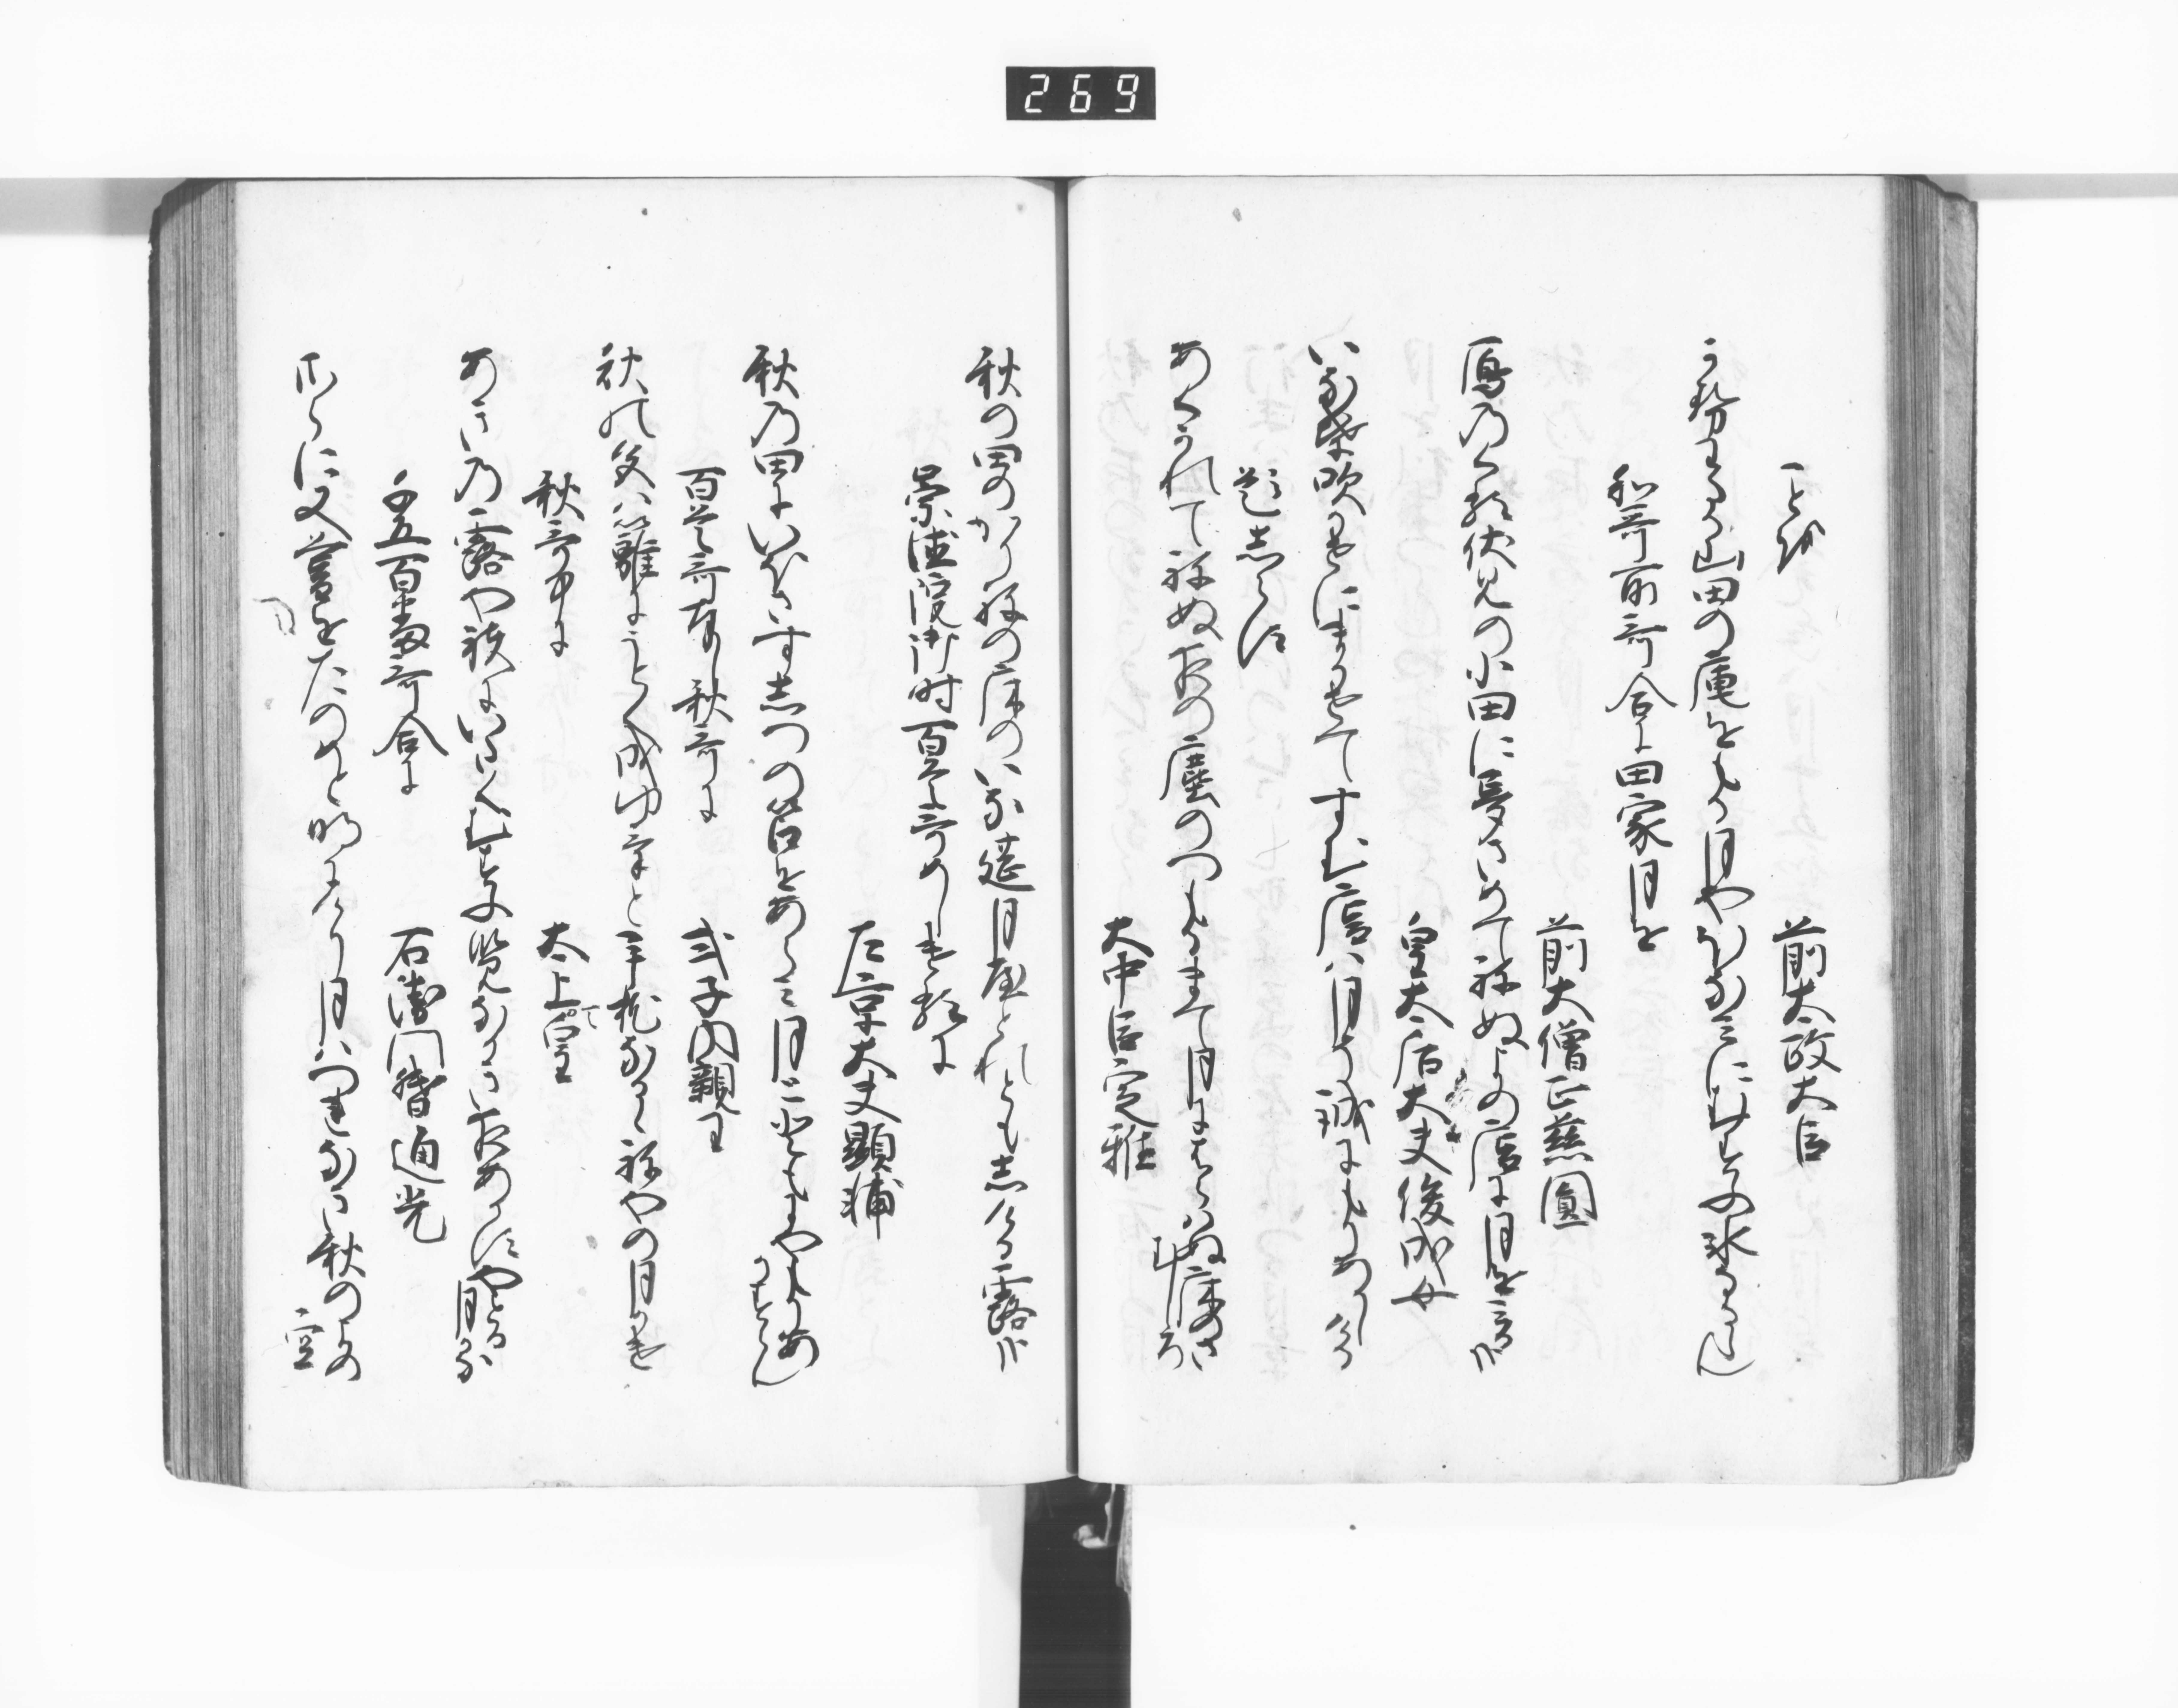 269
ことを
前太政大臣
風わたる山田の庵をもる月やほなみにむすふ氷なるらん
和哥所哥合に田家月を
前大僧正慈圓
鴈乃くる伏見の小田に夢さめてねぬよの庵に月を見るかな
皇太后大夫俊成女
いな葉吹風にまかせてすむ庵は月そ誠にもりあかしける
題しらす
あくかれてねぬ夜の塵のつもるまて月にはらはぬ床のさむしろ
大中臣定雅
秋の田のかりねの床のいな莚月やとれともしける露かな
崇徳院御時百首哥めしけるに
左京大夫顕輔
秋乃田にいほさすしつの苫をあらみ月と共にやもりあかすらん
百首哥奉し秋哥に
式子内親王
秋の色は籬にうとく成ゆけと手枕なるゝねやの月かけ
秋哥中に
太上天皇
あき乃露や袂にいたくむすふ覧なかき夜あかすやとる月かな
千五百番哥合に
右衛門督通光
さらに又暮をたのめと明にけり月はつれなき秋のよの空